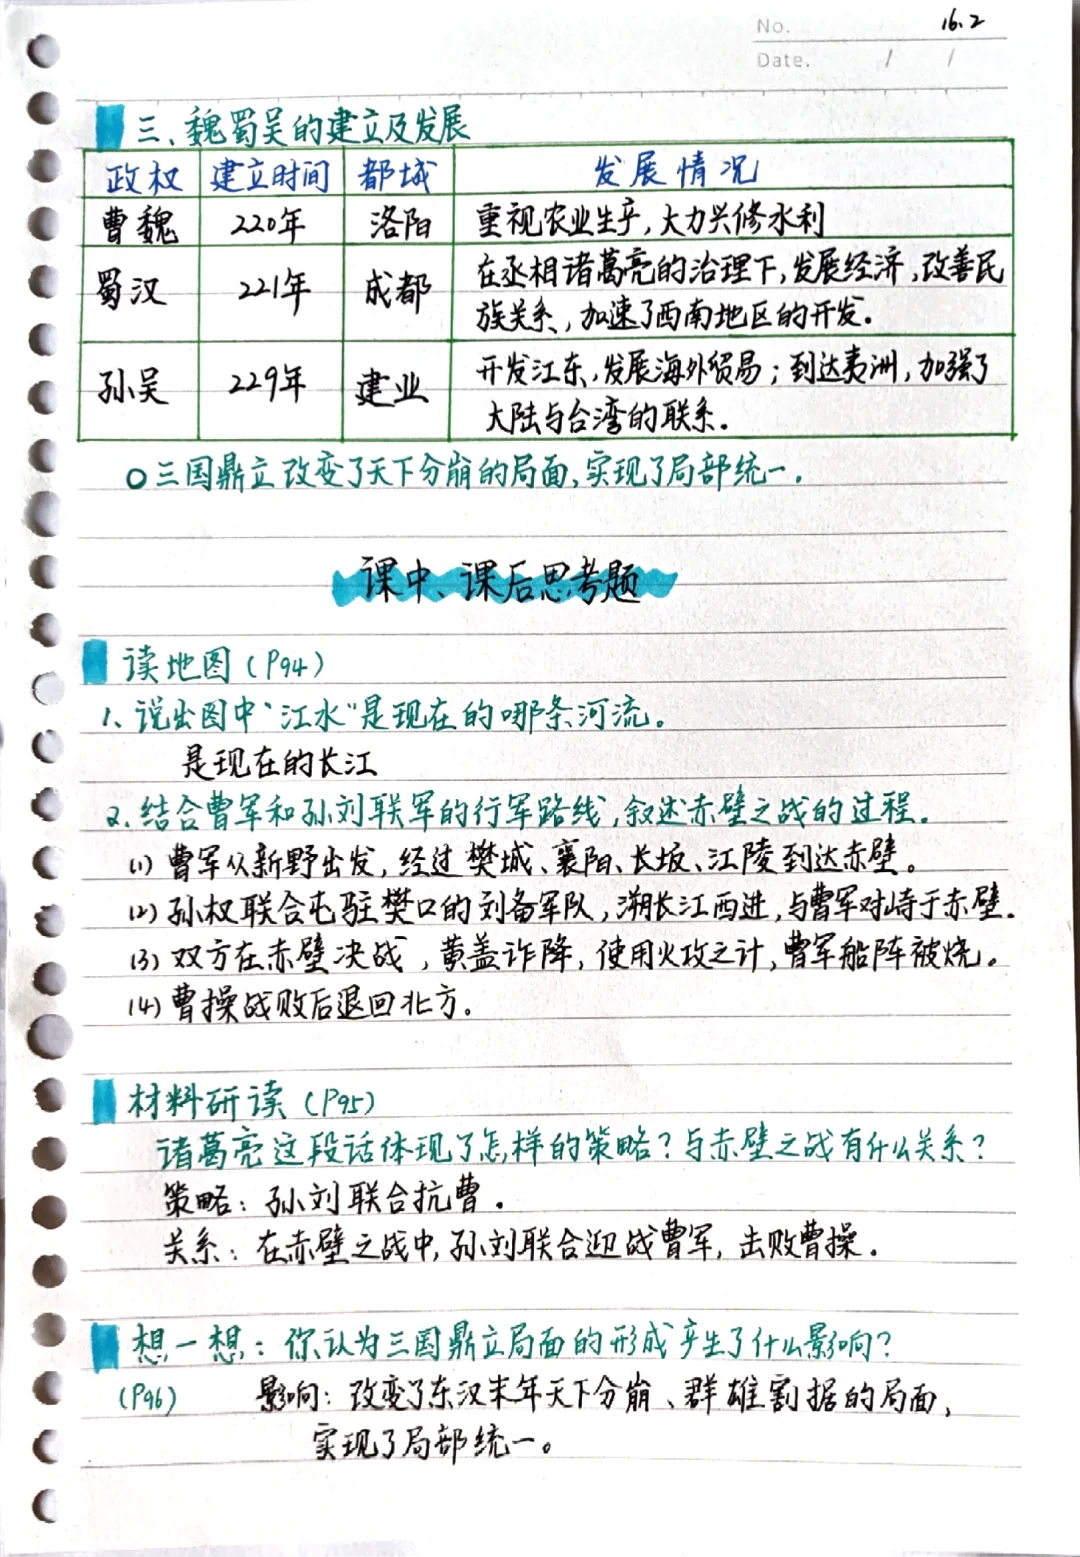 No. 16.2
Date. / /
三、魏蜀吴的建立及发展
政权 建立时间 都城 发展情况
曹魏 220年 洛阳 重视农业生产,大力兴修水利
蜀汉 221年 成都 在丞相诸葛亮的治理下,发展经济,改善民
族关系,加速了西南地区的开发。
孙吴 229年 建业 开发江东,发展海外贸易;到达夷洲,加强了
大陆与台湾的联系。
○三国鼎立改变了天下分崩的局面,实现了局部统一。
课中、课后思考题
读地图(P94)
1、说出图中“江水”是现在的哪条河流。
是现在的长江
2、结合曹军和孙刘联军的行军路线,叙述赤壁之战的过程。
(1)曹军从新野出发,经过樊城、襄阳、长坂、江陵到达赤壁。
(2)孙权联合屯驻樊口的刘备军队,溯长江西进,与曹军对峙于赤壁。
(3)双方在赤壁决战,黄盖诈降,使用火攻之计,曹军船阵被烧。
(4)曹操战败后退回北方。
材料研读(P95)
诸葛亮这段话体现了怎样的策略?与赤壁之战有什么关系?
策略:孙刘联合抗曹。
关系:在赤壁之战中,孙刘联合迎战曹军,击败曹操。
想一想:你认为三国鼎立局面的形成产生了什么影响?
(P96) 影响:改变了东汉末年天下分崩、群雄割据的局面,
实现了局部统一。